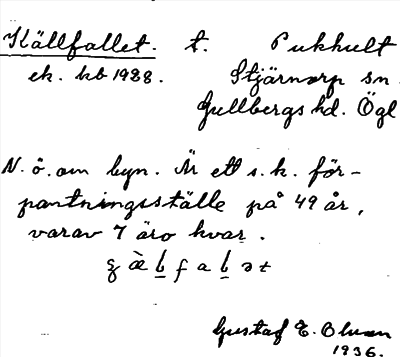 Källfallet. t. Pukhult
ek. kb 1928. Stjärnorp sn.
Gullbergs hd. Ögl
N. ö. om byn. Är ett s.k. för-
pantningsställe på 49 år,
varav 7 äro kvar.
Gustaf E. Olsson
1936.